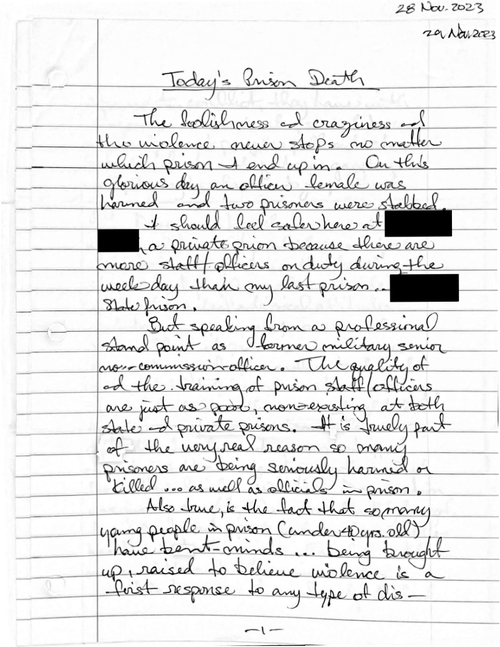 28 Nov. 2023
29 Nov. 2023
Today's Prison Death
The foolishness and craziness and
the violence never stops no matter
which prison I end up in. On this
glorious day an officer female was
harmed and two prisoners were stabbed.
I should feel safer here at
, a private prison because there are
more staff/officers on duty during the
week day than my last prison...
State prison.
But speaking from a professional
stand point as former military senior
non-commission officer. The quality of
of the training of prison staff/officers
are just as poor, non-existing at both
state and private prisons. It is truely part
of the very real reason so many
prisoners are being seriously harmed or
killed... as well as officials in prison.
Also true, is the fact that so many
young people in prison (under 40 yrs. old)
have bent-minds... being brought
up, raised to believe violence is a
first response to any type of dis-
-1-